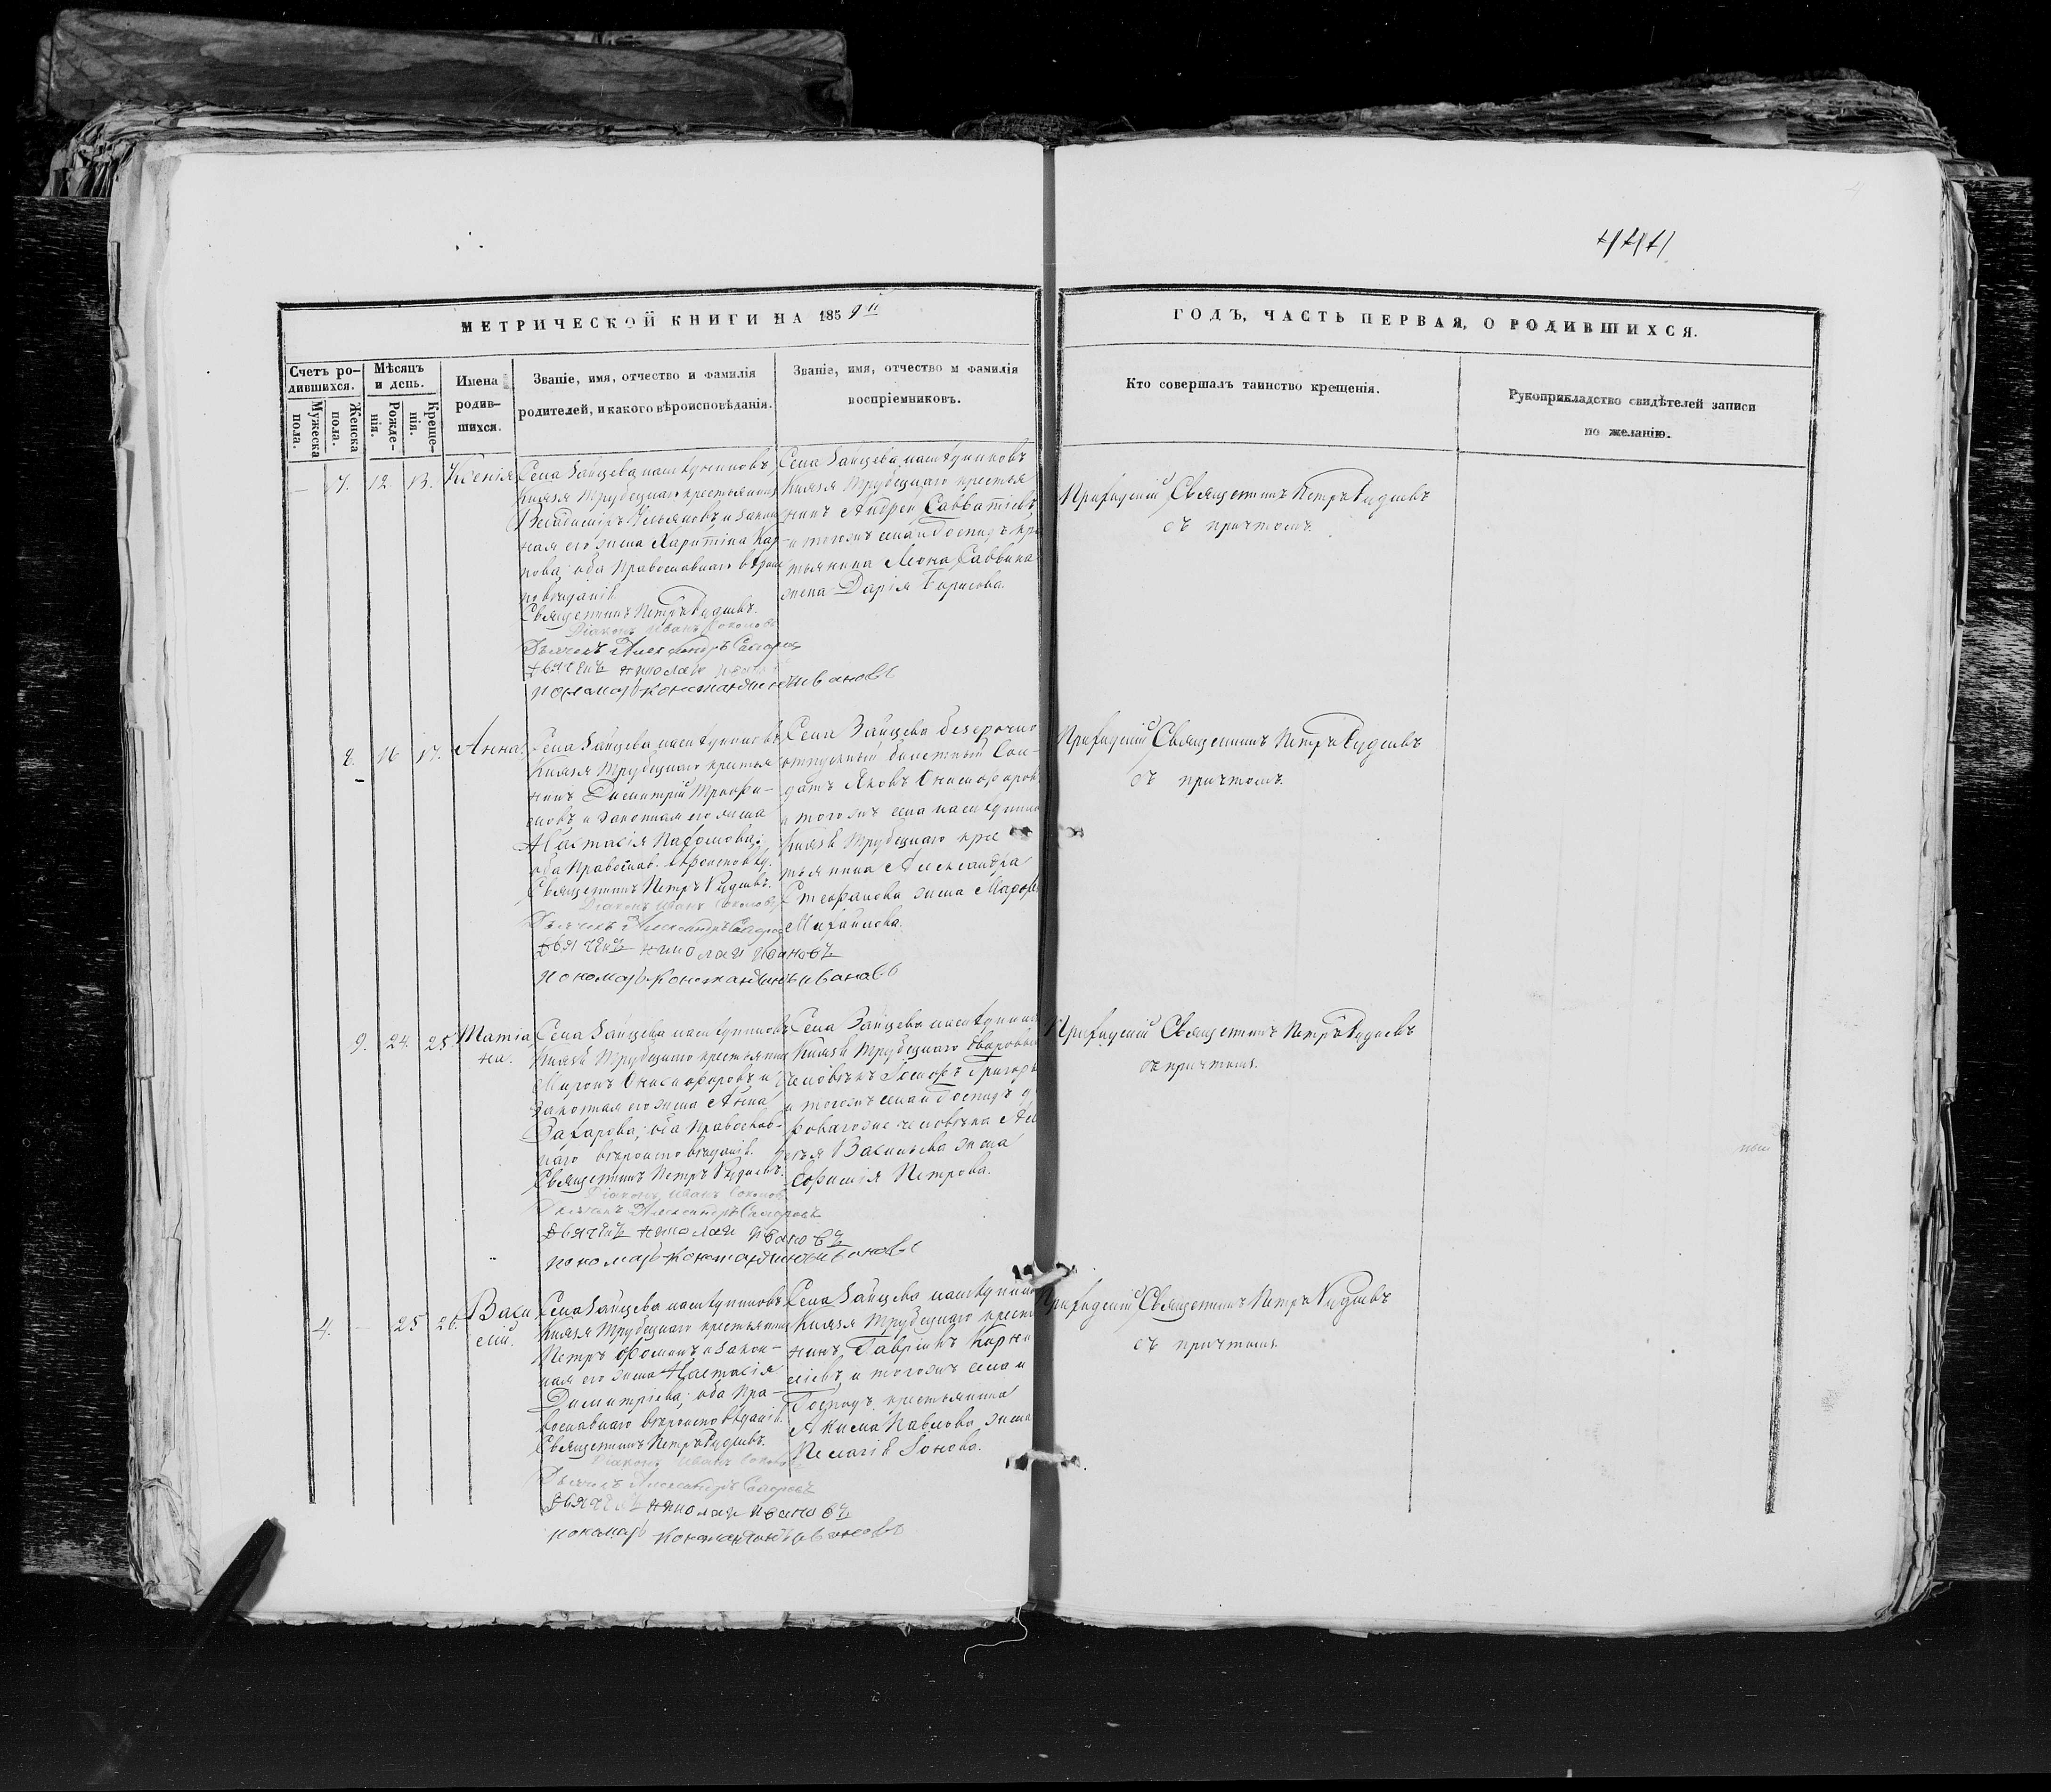 444
МЕТРИЧЕСКОЙ КНИГИ НА 1859й
ГОДЪ, ЧАСТЬ ПЕРВАЯ, О РОДИВШИХСЯ.
Счетъ ро-
дившихся.
Мужеска
пола.
Женска
пола.
Мѣсяцъ
и день.
Рожде-
нія.
Креще-
нія.
Имена
родив-
шихся.
Званіе, имя, отчество и фамилія
родителей, и какого вѣроисповѣданія.
Званіе, имя, отчество и фамилія
воспріемниковъ.
Кто совершалъ таинство крещенія.
Рукоприкладство свидѣтелей записи
по желанію.
7. 12. 13. Ксенія
Села Зайцева наслѣдниковъ
Князя Трубецкаго крестьянинъ
Ульяновъ и закон
ная его жена Харитина Кар
пова; оба Православнаго вѣроис
повѣданія.
Священникъ Петръ
Діаконъ Иванъ Соколовъ
Дьячекъ Александръ
Дьячекъ Николай
пономарь Константинъ Ивановъ
Села Зайцева наслѣдниковъ
Князя Трубецкаго крестья
нинъ Андрей Савватіевъ
и тогожъ села и Господъ кре
стьянина Саввина
жена Дарія Борисова.
Приходскій Священникъ Петръ
съ причтомъ.
8. 16 17. Анна
Села Зайцева наслѣдниковъ
Князя Трубецкаго крестья
нинъ Димитрій Трофи-
мовъ и законная его жена
Настасія Пахомова;
оба Православ. вѣроисповѣд.
Священникъ Петръ
Діаконъ Иванъ Соколовъ
Дьячекъ Александръ
Дьячекъ Николай Ивановъ
пономарь Константинъ Ивановъ
Села Зайцева безсрочно
отпускный билетный Сол-
датъ Яковъ Онисифоровъ
и тогожъ села наслѣдник
Князя Трубецкаго кре
стьянина Александра
Стефанова жена Марфа
Михайлова.
Приходскій Священникъ Петръ
съ причтомъ.
9. 24. 25 Татіа
на.
Села Зайцева наслѣдниковъ
Князя Трубецкаго крестьянинъ
Миронъ Онисифоровъ и
законная его жена Анна
Захарова; оба Православ-
наго вѣроисповѣданія.
Священникъ Петръ
Діаконъ Иванъ Соколовъ
Дьячекъ Александръ
Дьячекъ Николай Ивановъ
пономарь Константинъ Ивановъ
Села Зайцева наслѣдник
Князя Трубецкаго дворовый
человѣкъ Іосифъ Григорь
и тогожъ села и Господъ д
человѣка
Васильева жена
Петрова.
Приходскій Священникъ Петръ
съ причтомъ.
4. – 25 26. Васи
лій.
Села Зайцева наслѣдниковъ
Князя Трубецкаго крестьянинъ
Петръ Фоминъ и закон-
ная его жена Настасія
Димитріева; оба Пра-
вославнаго вѣроисповѣданія.
Священникъ Петръ
Діаконъ Иванъ Соколовъ
Дьячекъ Александръ
Дьячекъ Николай Ивановъ
пономарь Константинъ Ивановъ
Села Зайцева наслѣдник
Князя Трубецкаго кресть
нинъ Гавріилъ Корни
ліевъ, и тогожъ села и
Господъ крестьянина
Акима Павлова жена
Пелагія Іонова.
Приходскій Священникъ Петръ
съ причтомъ.